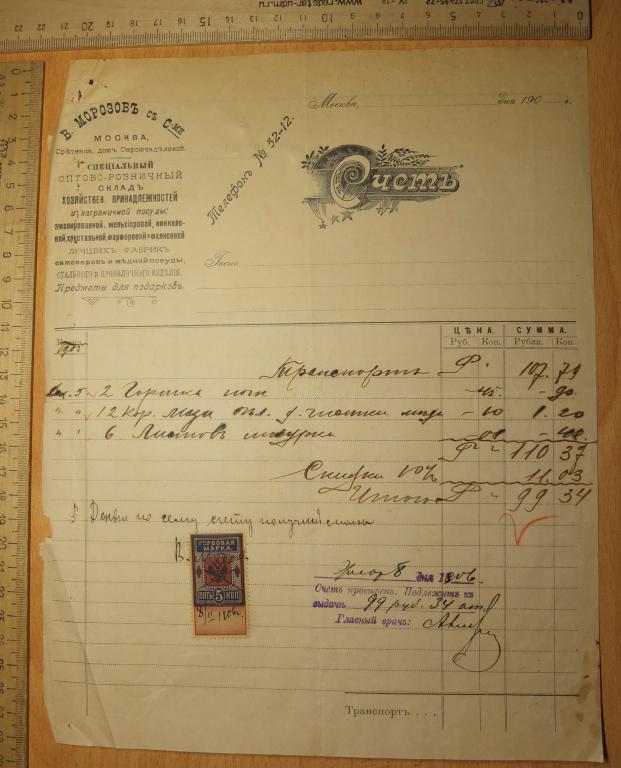 В. МОРОЗОВЪ съ С-ми
МОСКВА,
Срѣтенка, домъ
СПЕЦІАЛЬНЫЙ
ОПТОВО-РОЗНИЧНЫЙ
СКЛАДЪ
ХОЗЯЙСТВЕН. ПРИНАДЛЕЖНОСТЕЙ
и заграничной посуды:
эмалированной, мельхіоровой, никкеле-
вой, хрустальной, фарфоровой и фаянсовой
ЛУЧШИХЪ ФАБРИКЪ
самоваровъ и мѣдной посуды,
СТАЛЬНОГО и ПРОВОЛОЧНАГО ИЗДѢЛІЯ.
Предметы для подарковъ.
Телефонъ № 52-12.
Москва, дня 190 г.
Счетъ
Госп.
ЦѢНА. СУММА.
Руб. Коп. Рубли. Коп.
Транспортъ Р. 107. 79
2 45. - 90
12 Кор. - 10 1. 20
6. Листовъ
110 37
Скидки 10% 11. 03
Итого Р. 99 34
Деньги по сему счету получилъ сполна
ГЕРБОВАЯ
МАРКА.
ПЯТЬ 5 КОП
8/II 1906г.
8 дня 1906.
Счетъ провѣренъ. Подлежитъ къ
выдачѣ 99 руб. 34 коп
Главный врачъ:
Транспортъ . . .